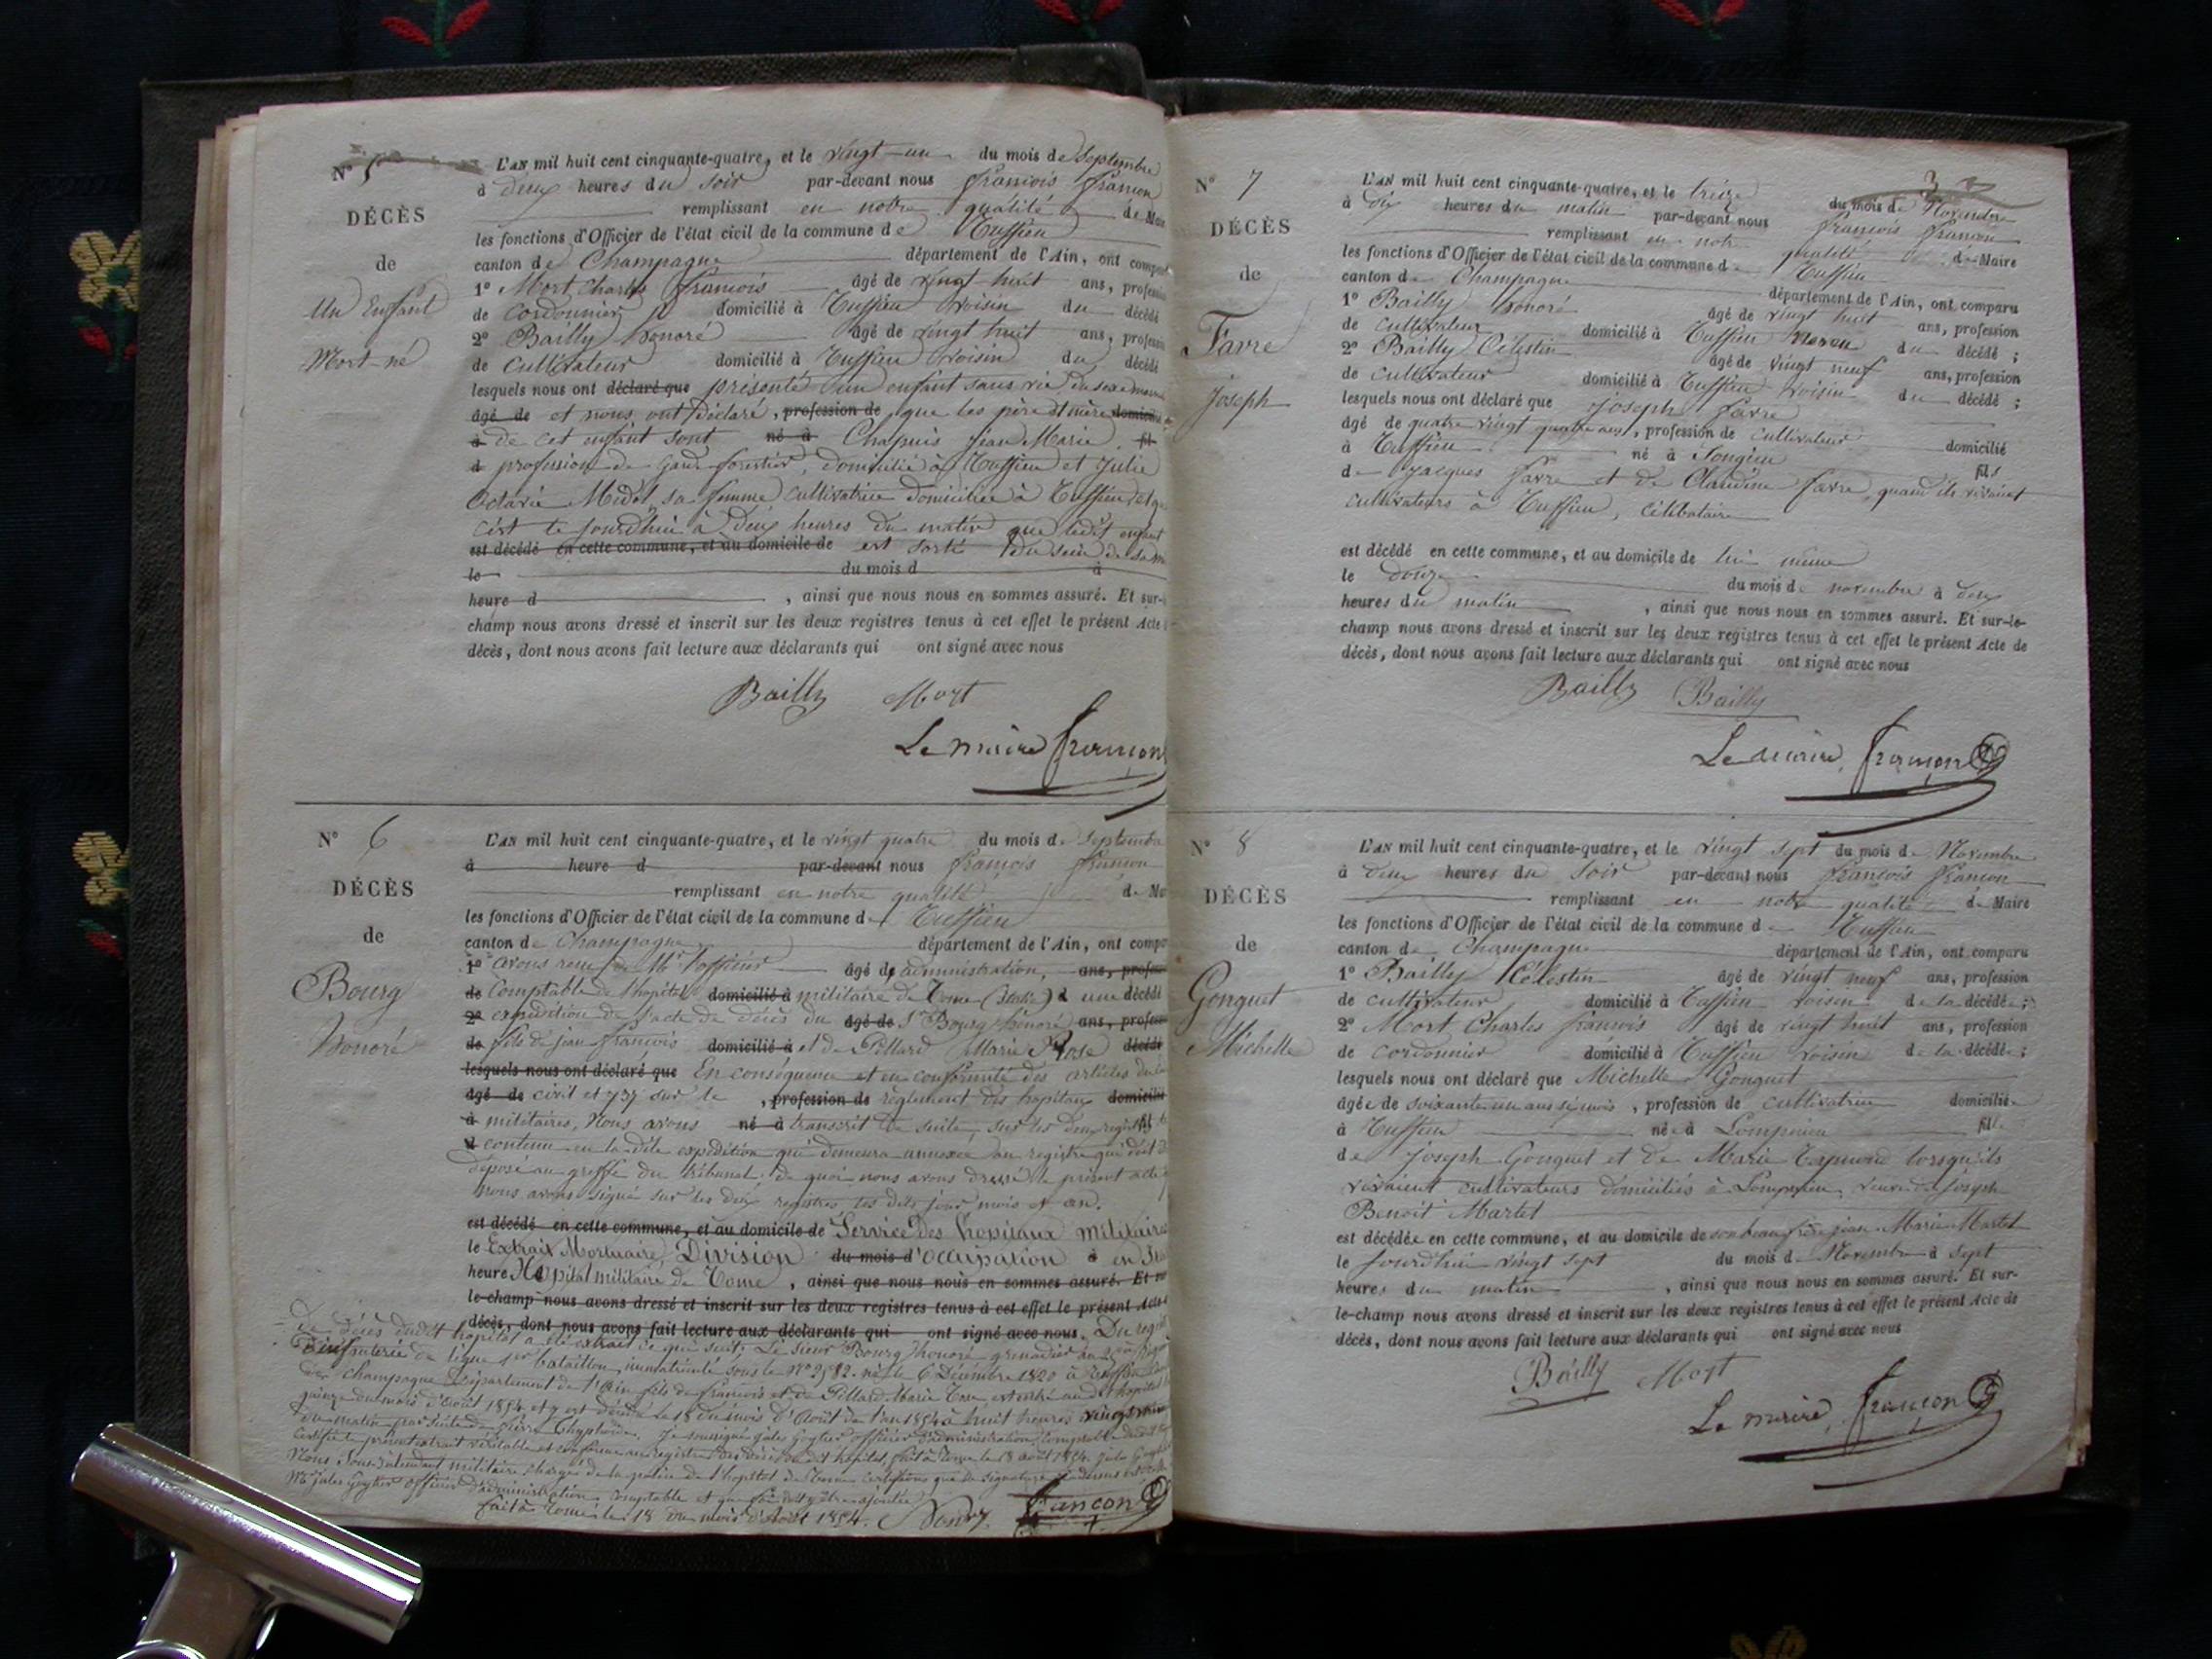 N° 5
DÉCÈS
de
Un Enfant
Mort-né
L'AN mil huit cent cinquante-quatre, et le vingt-un du mois de Septembre
à deux heures du soir par-devant nous françois françon
remplissant en notre qualité de Mai
les fonctions d'Officier de l'état civil de la commune de
canton de Champagne département de l'Ain, ont compa
1° Mort Charles françois âgé de vingt huit ans, profession
de cordonnier domicilié à voisin du décédé
2° Bailly honoré âgé de vingt huit ans, profession
de cultivateur domicilié à voisin du décédé
lesquels nous ont déclaré que présenté un enfant sans vie du sexe
âgé de et nous ont déclaré, profession de que les père et mère domicilié
à de cet enfant sont né à Chapuis jean Marie fil
d profession de garde forestier, domicilié à et Julie
Octavie sa femme cultivatrice domiciliée à
c'est le jourd'hui à deux heures du matin que ledit enfant
est décédé en cette commune, et au domicile de est sorti du sein de sa
le du mois d à
heure d , ainsi que nous nous en sommes assuré. Et sur-
champ nous avons dressé et inscrit sur les deux registres tenus à cet effet le présent Acte
décès, dont nous avons fait lecture aux déclarants qui ont signé avec nous
Bailly Mort
Le maire françon
N° 6
DÉCÈS
de
Bourg
honoré
L'AN mil huit cent cinquante-quatre, et le vingt quatre du mois de Septembre
à heure d par-devant nous françois françon
remplissant en notre qualité de Mai
les fonctions d'Officier de l'état civil de la commune d
canton de Champagne département de l'Ain, ont compa
1° avons reçu de Mr l'officier âgé de administration, ans, profes
de Comptable de l'hôpital domicilié à militaire de une décédé
2° expédition de l'acte de décès du âgé de Sr Bourg honoré ans, profes
de fils de jean françois domicilié à et de Pillard Marie décédé
lesquels nous ont déclaré que En conséquence et en conformité des articles du
âgé de civil et sur le , profession de règlement des hôpitaux domicilié
à militaires, Nous avons né à transcrit de suite, sur les deux registres
d contenu en la dite expédition qui demeura annexée au registre qui doit
déposé au greffe du tribunal. de quoi nous avons dressé le présent acte
nous avons signé sur les deux registres les dits jour mois et an.
est décédé en cette commune, et au domicile de Service des hopitaux militaires
le Extrait Mortuaire, Division du mois d'occupation à en
heure Hôpital militaire de , ainsi que nous nous en sommes assuré. Et sur
le-champ nous avons dressé et inscrit sur les deux registres tenus à cet effet le présent Acte
décès, dont nous avons fait lecture aux déclarants qui ont signé avec nous. Du
de décès dudit hopital a été extrait ce qui suit: Le sieur Bourg honoré grenadier au
D'infanterie de ligne 1er bataillon, immatriculé sous le N° né le 6 Décembre 1820 à
de champagne Département de l'Ain fils de françois et de Pillard Marie est entré au dit hopital
quinze du mois d'août 1854 et y est décédé le 18 du mois d'Août de l'an 1854 à huit heures
du matin par suite de fièvre Je soussigné Jules officier d'administration Comptable dudit
certifie le présent extrait véritable et conforme au registre des décès du dit hopital, fait à le 18 août 1854. Jules
Nous Sous-intendant militaire chargé de la police de l'hopital de certifions que la signature ci dessus est celle
Mr Jules officier d'administration comptable et que foi doit y être ajoutée
fait à le 18 du mois d'Août 1854. françon
3
N° 7
DÉCÈS
de
Favre
Joseph
L'AN mil huit cent cinquante-quatre, et le treize du mois de Novembre
à dix heures du matin par-devant nous françois françon
remplissant en notre qualité de Maire
les fonctions d'Officier de l'état civil de la commune d
canton de Champagne département de l'Ain, ont comparu
1° Bailly honoré âgé de vingt huit ans, profession
de cultivateur domicilié à neveu du décédé ;
2° Bailly Célestin âgé de vingt neuf ans, profession
de cultivateur domicilié à voisin du décédé ;
lesquels nous ont déclaré que Joseph favre
âgé de quatre vingt quatre ans, profession de cultivateur domicilié
à né à Songieu fils
de Jacques favre et de Claudine favre, quand ils vivaient
cultivateurs à célibataire
est décédé en cette commune, et au domicile de lui même
le douze du mois de novembre à deux
heures du matin , ainsi que nous nous en sommes assuré. Et sur-le-
champ nous avons dressé et inscrit sur les deux registres tenus à cet effet le présent Acte de
décès, dont nous avons fait lecture aux déclarants qui ont signé avec nous
Bailly Bailly
Le maire, françon
N° 8
DÉCÈS
de
Gonguet
Michelle
L'AN mil huit cent cinquante-quatre, et le vingt sept du mois de Novembre
à deux heures du Soir par-devant nous françois françon
remplissant en notre qualité de Maire
les fonctions d'Officier de l'état civil de la commune d
canton de Champagne département de l'Ain, ont comparu
1° Bailly Célestin âgé de vingt neuf ans, profession
de cultivateur domicilié à voisin de la décédée ;
2° Mort Charles françois âgé de vingt huit ans, profession
de cordonnier domicilié à voisin de la décédée ;
lesquels nous ont déclaré que Michelle Gonguet
âgée de soixante un ans six mois , profession de cultivatrice domiciliée
à née à fille
de Joseph Gonguet et de Marie lorsqu'ils
vivaient cultivateurs domiciliés à veuve de Joseph
Benoit Martet
est décédée en cette commune, et au domicile de son beau frère jean Marie Martet
le jourd'hui vingt sept du mois de Novembre à sept
heures du matin , ainsi que nous nous en sommes assuré. Et sur-
le-champ nous avons dressé et inscrit sur les deux registres tenus à cet effet le présent Acte de
décès, dont nous avons fait lecture aux déclarants qui ont signé avec nous
Bailly Mort
Le maire, françon